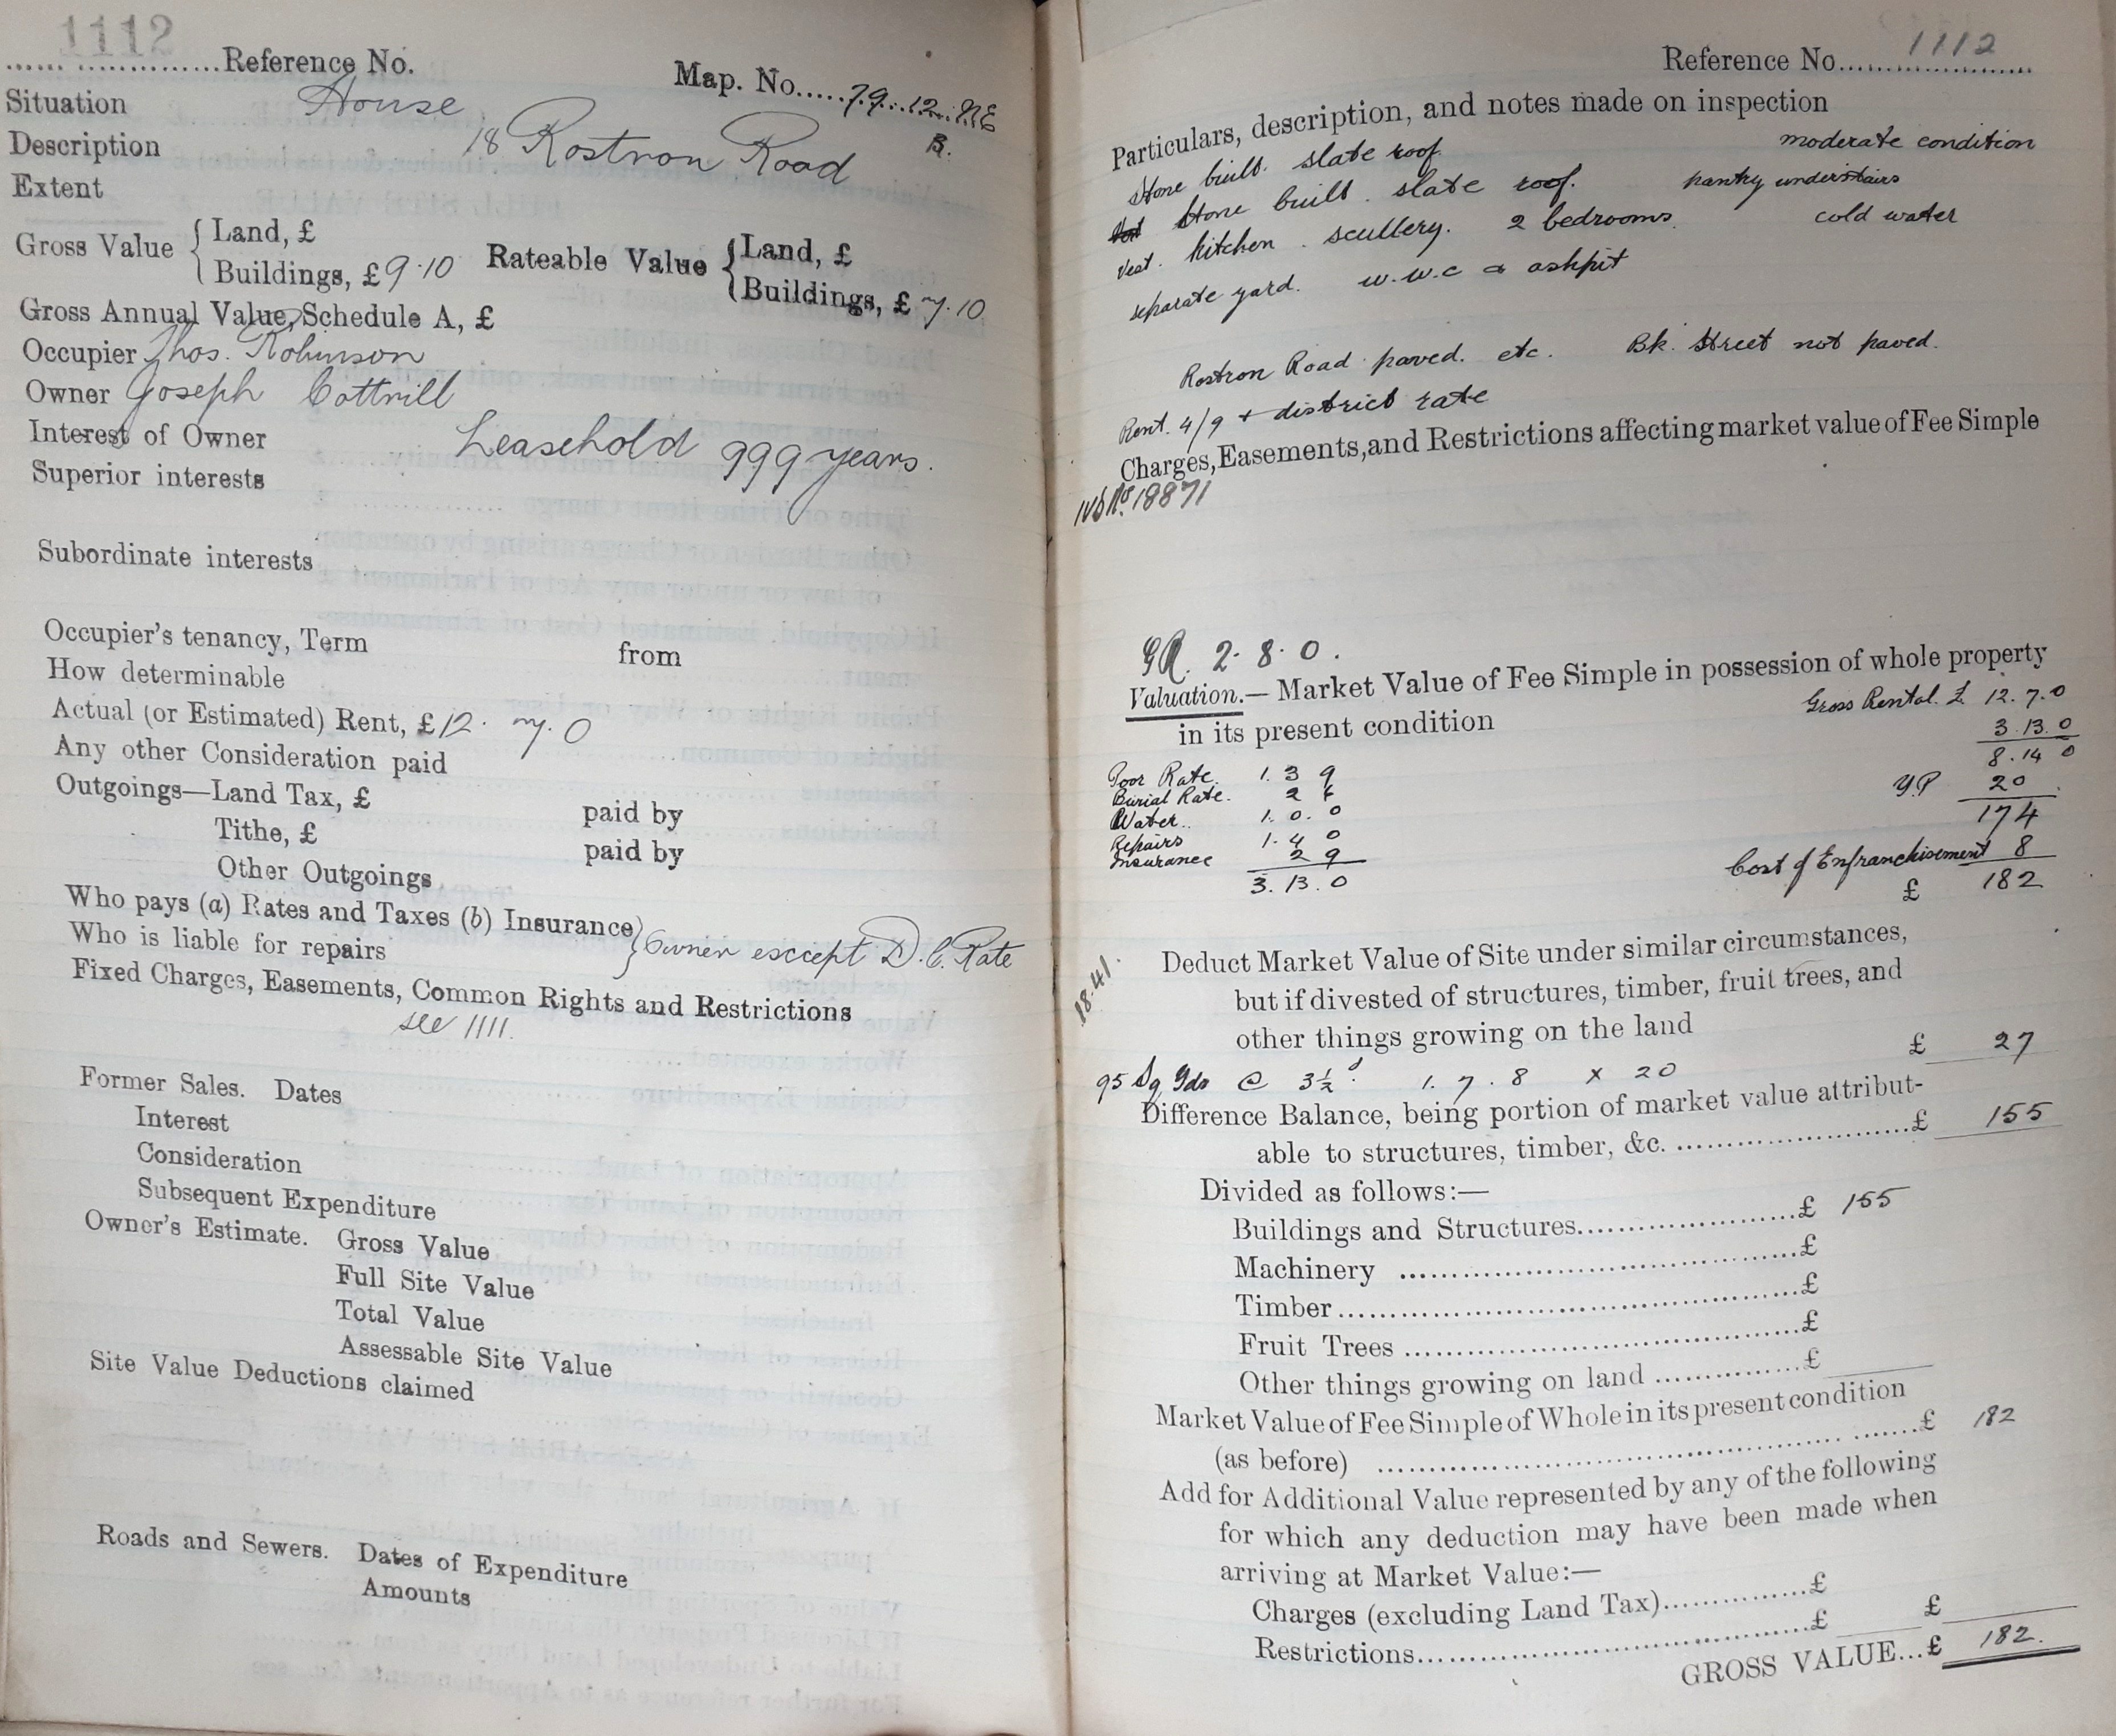 1112
Reference No.
Map. No. 79.12.NE
B.
Situation House
Description 18 Rostron Road
Extent
Gross Value { Land, £
Buildings, £ 9.10
Rateable Value { Land, £
Buildings, £ 7.10
Gross Annual Value, Schedule A, £
Occupier Thos. Robinson
Owner Joseph Cottrill
Interest of Owner Leasehold 999 years.
Superior interests
Subordinate interests
Occupier's tenancy, Term from
How determinable
Actual (or Estimated) Rent, £ 12. 7. 0
Any other Consideration paid
Outgoings—Land Tax, £ paid by
Tithe, £ paid by
Other Outgoings
Who pays (a) Rates and Taxes (b) Insurance }
Who is liable for repairs } Owner except D.C. Rate
Fixed Charges, Easements, Common Rights and Restrictions
see 1111.
Former Sales. Dates
Interest
Consideration
Subsequent Expenditure
Owner's Estimate. Gross Value
Full Site Value
Total Value
Assessable Site Value
Site Value Deductions claimed
Roads and Sewers. Dates of Expenditure
Amounts
Reference No. 1112
Particulars, description, and notes made on inspection
stone built. slate roof. moderate condition
stone built. slate roof. pantry understairs
Vest. kitchen. scullery. 2 bedrooms. cold water
separate yard. w.w.c & ashpit
Rostron Road paved. etc. Bk. Street not paved.
Rent. 4/9 + district rate
Charges, Easements, and Restrictions affecting market value of Fee Simple
No. 18871
GR. 2. 8. 0.
Valuation.— Market Value of Fee Simple in possession of whole property
in its present condition
Gross Rental. £ 12. 7. 0
3. 13. 0
8. 14 0
Y.P 20
174
Cost of Enfranchisement 8
£ 182
Poor Rate. 1. 3 9
Burial Rate. 2 6
Water. 1. 0. 0
Repairs 1. 4 0
Insurance 2 9
3. 13. 0
18.41.
Deduct Market Value of Site under similar circumstances,
but if divested of structures, timber, fruit trees, and
other things growing on the land £ 27
95 Sq Yds @ 3½d. 1. 7. 8 x 20
Difference Balance, being portion of market value attribut-
able to structures, timber, &c. £ 155
Divided as follows:—
Buildings and Structures £ 155
Machinery £
Timber £
Fruit Trees £
Other things growing on land £
Market Value of Fee Simple of Whole in its present condition
(as before) £ 182
Add for Additional Value represented by any of the following
for which any deduction may have been made when
arriving at Market Value:—
Charges (excluding Land Tax) £
Restrictions £ £
GROSS VALUE...£ 182.